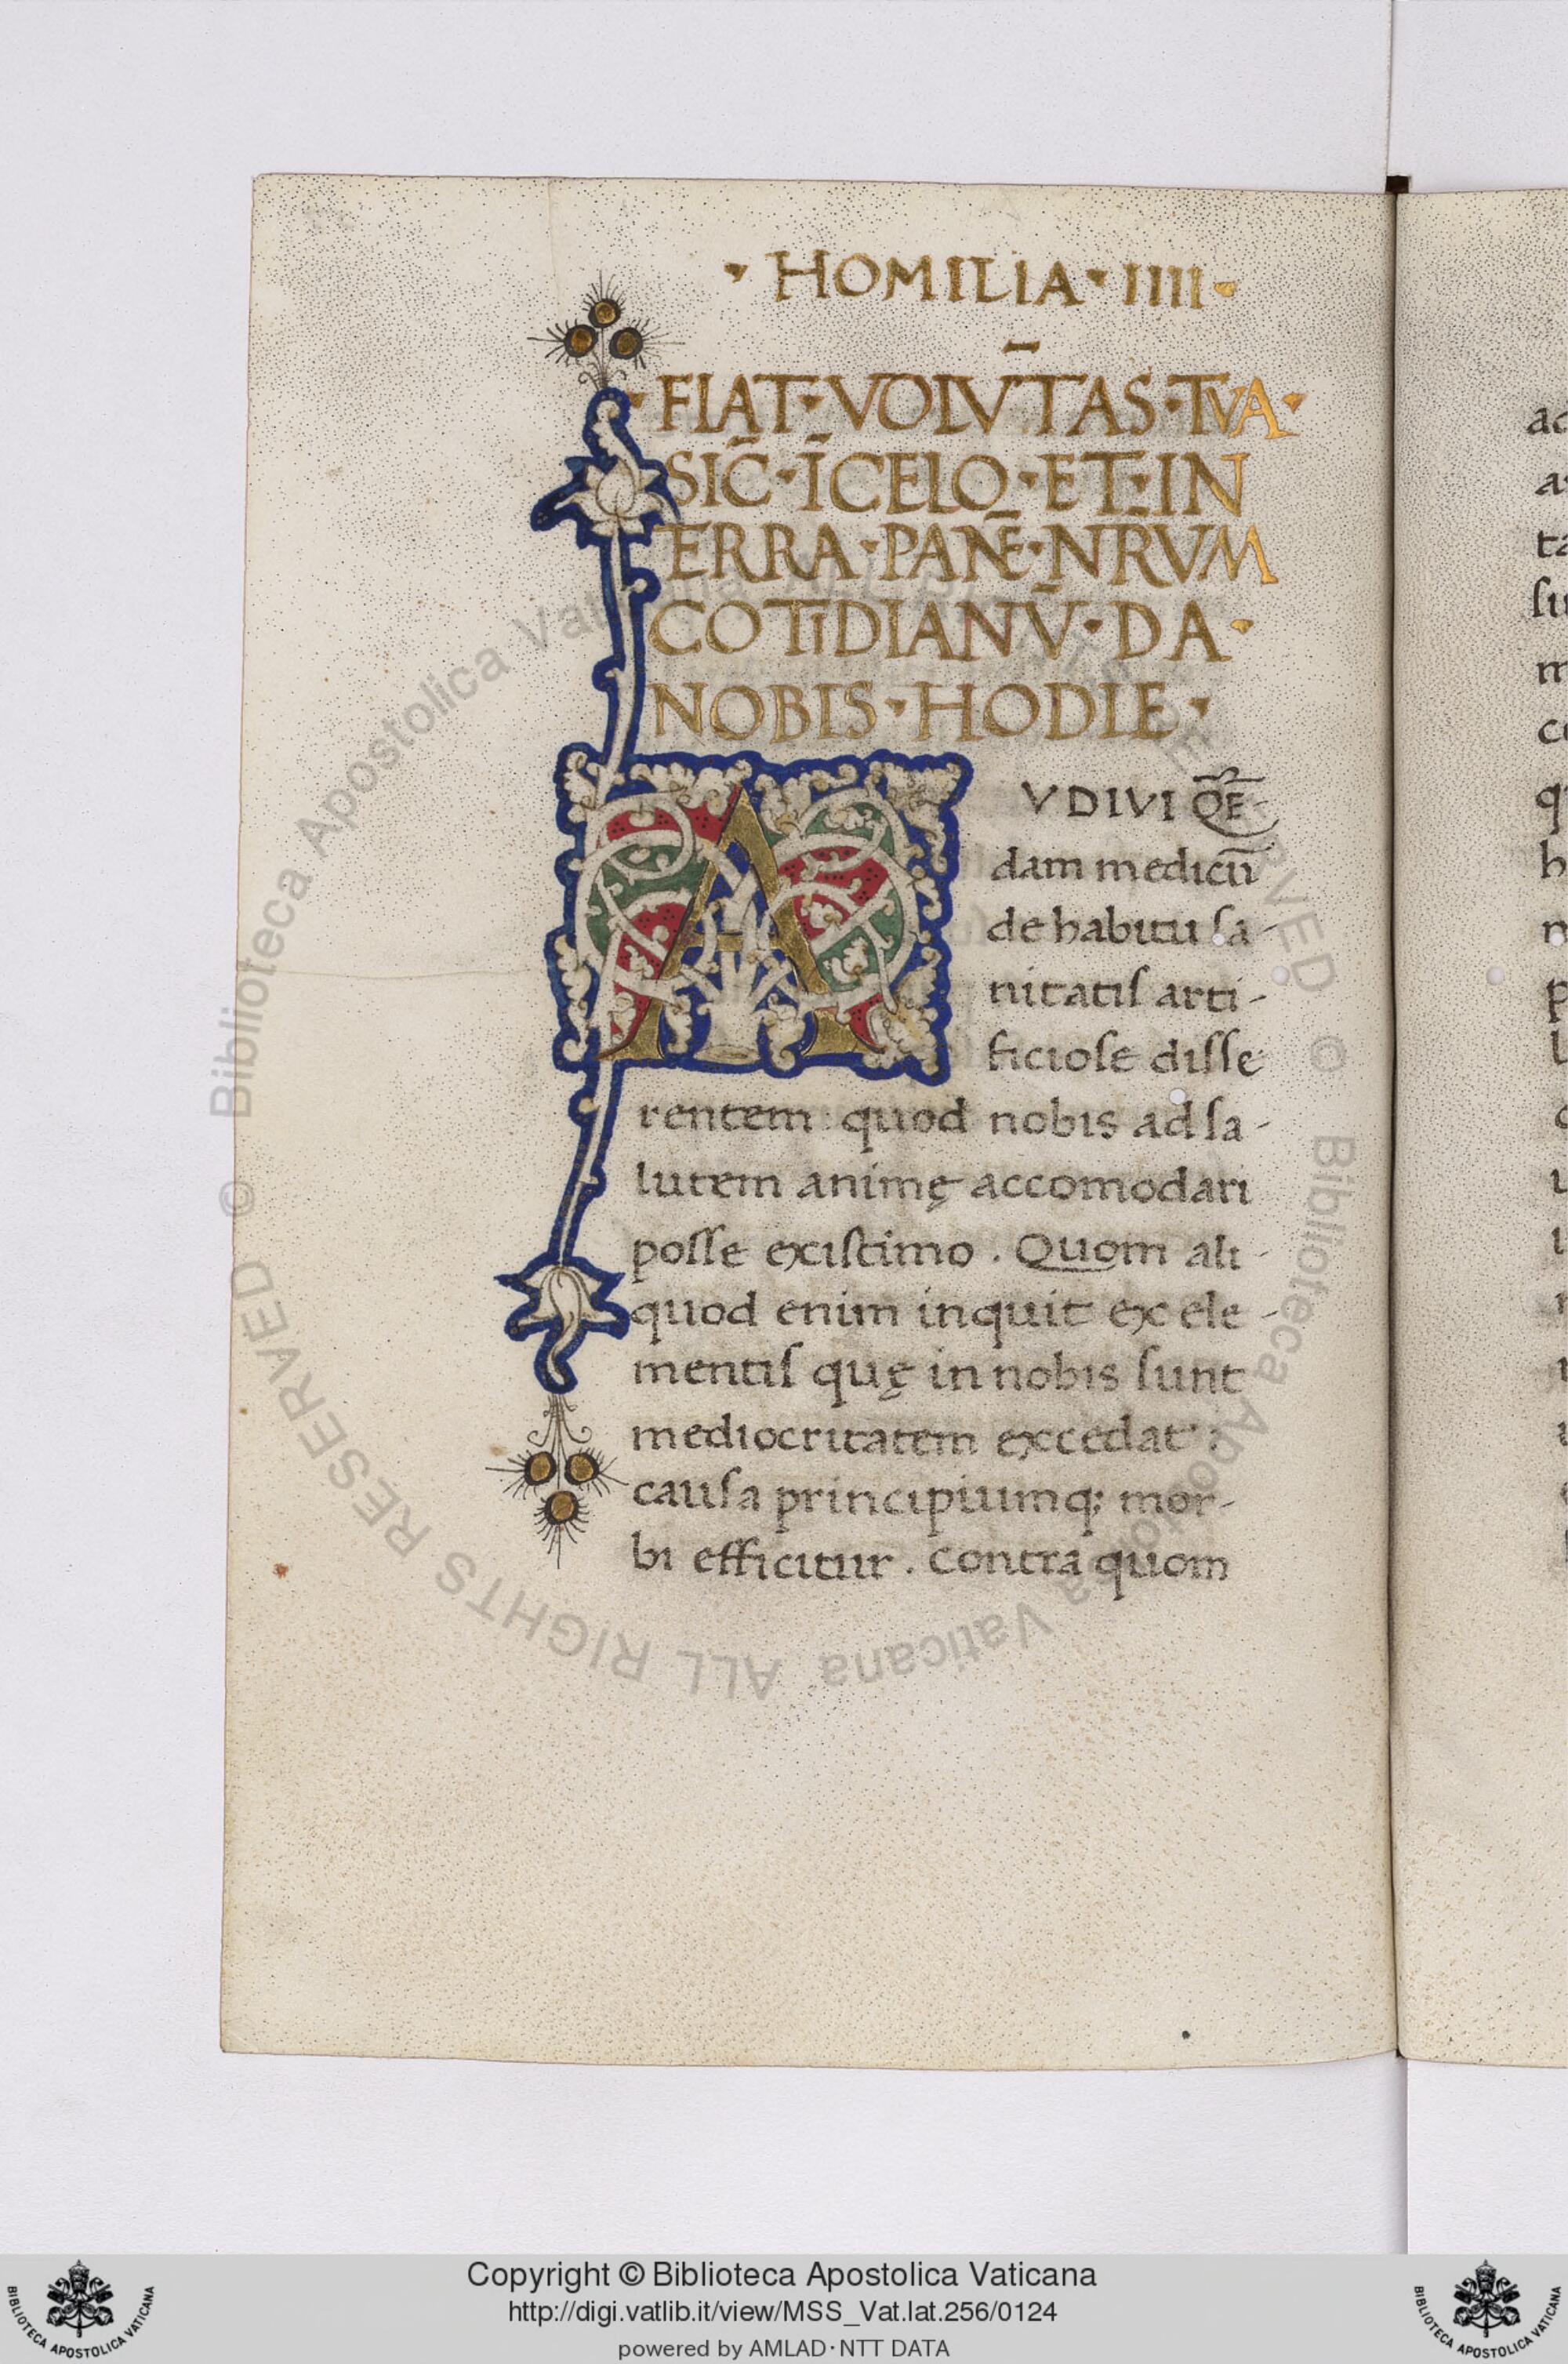 · HOMILIA · IIII ·
· FIAT · VOLV̄TAS · TVA ·
SIC̄ · ĪCELO · ET · IN
TERRA · PANĒ · NR̄VM
COTIDIANV̄ · DA ·
NOBIS · HODIE ·
AVDIVI QVĒ-
dam medicū
de habitu sa-
nitatis arti-
ficiose disse
rentem : quod nobis ad sa-
lutem animę accomodari
posse existimo . Quom ali-
quod enim inquit ex ele-
mentis quę in nobis sunt
mediocritatem excedat :
causa principiumq; mor-
bi efficitur . Contra quom
© Biblioteca Apostolica Vaticana ALL RIGHTS RESERVED © Biblioteca Apostolica Vaticana ALL RIGHTS RESERVED
Copyright © Biblioteca Apostolica Vaticana
http://digi.vatlib.it/view/MSS_Vat.lat.256/0124
powered by AMLAD · NTT DATA
BIBLIOTECA APOSTOLICA VATICANA
BIBLIOTECA APOSTOLICA VATICANA